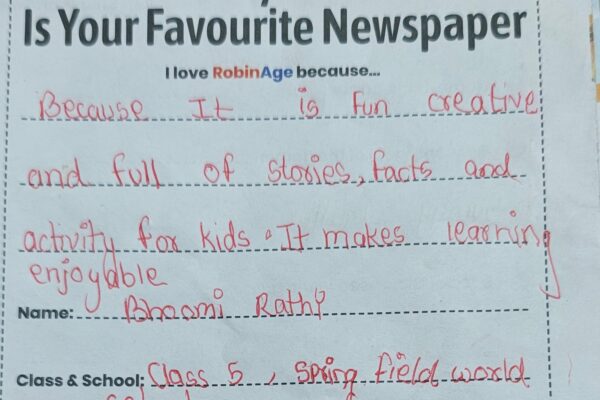 Is Your Favourite Newspaper
I love RobinAge because...
Because It is fun creative
and full of stories, facts and
activity for kids. It makes learning
enjoyable
Name: Bhoomi Rathi
Class & School: Class 5, Spring field world